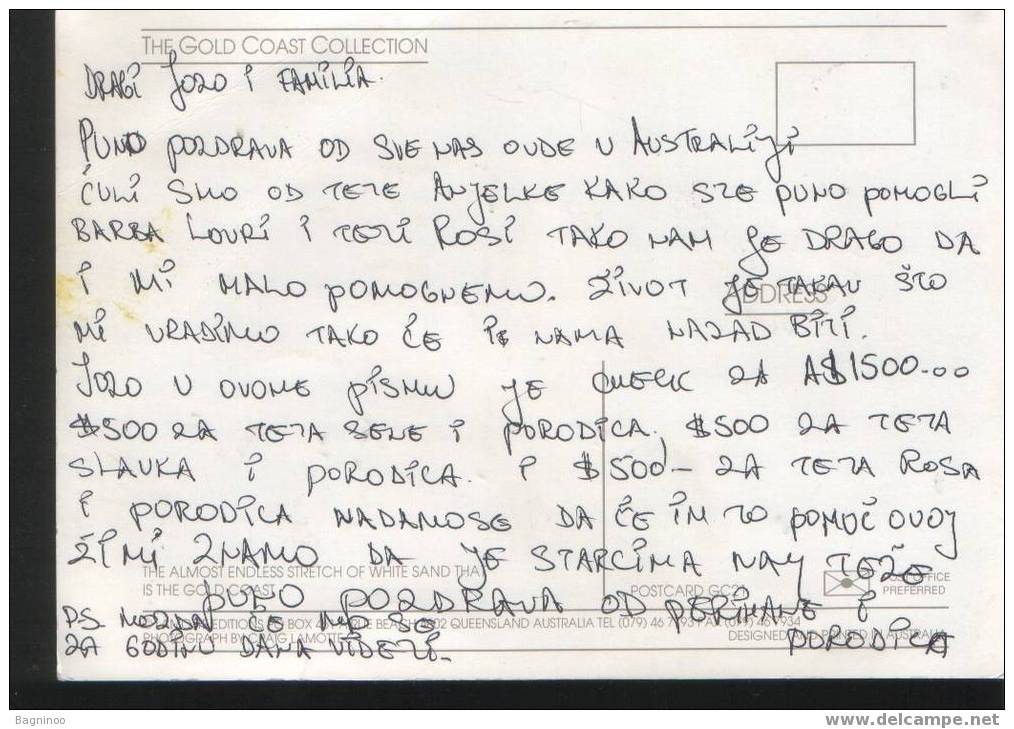 THE GOLD COAST COLLECTION
DRAGI JOZO I FAMILIA.
PUNO POZDRAVA OD SVE NAS OVDE U AUSTRALIJI
ČULI SMO OD TETE ANJELKE KAKO STE PUNO POMOGLI
BARBA LOURI I TETI ROSI TAKO NAM JE DRAGO DA
I MI MALO POMOGNEMO. ŽIVOT JE TAKAV ŠTO
ADDRESS
MI URADIMO TAKO ĆE I NAMA NAZAD BITI.
JOZO U OVOME PISMU JE CHECK ZA A$1500-00
$500 ZA TETA SENE I PORODICA, $500 ZA TETA
SLAVKA I PORODICA. I $500- ZA TETA ROSA
I PORODICA NADAMOSE DA ĆE IM TO POMOĆ OVOJ
ZIMI ZNAMO DA JE STARCIMA NAJ TEŽE
THE ALMOST ENDLESS STRETCH OF WHITE SAND THAT
IS THE GOLD COAST
POSTCARD GC21
POST OFFICE
PREFERRED
PUNO POZDRAVA OD PERIMANE I
PORODICA
PS MOZDA ĆE MO SE
ZA GODINU DANA VIDETI.
EDITIONS BOX BEACH QUEENSLAND AUSTRALIA TEL (079) 46
PHOTOGRAPH BY CRAIG LAMOTTE
DESIGNED AND PRINTED IN AUSTRALIA
Bagninoo
www.delcampe.net